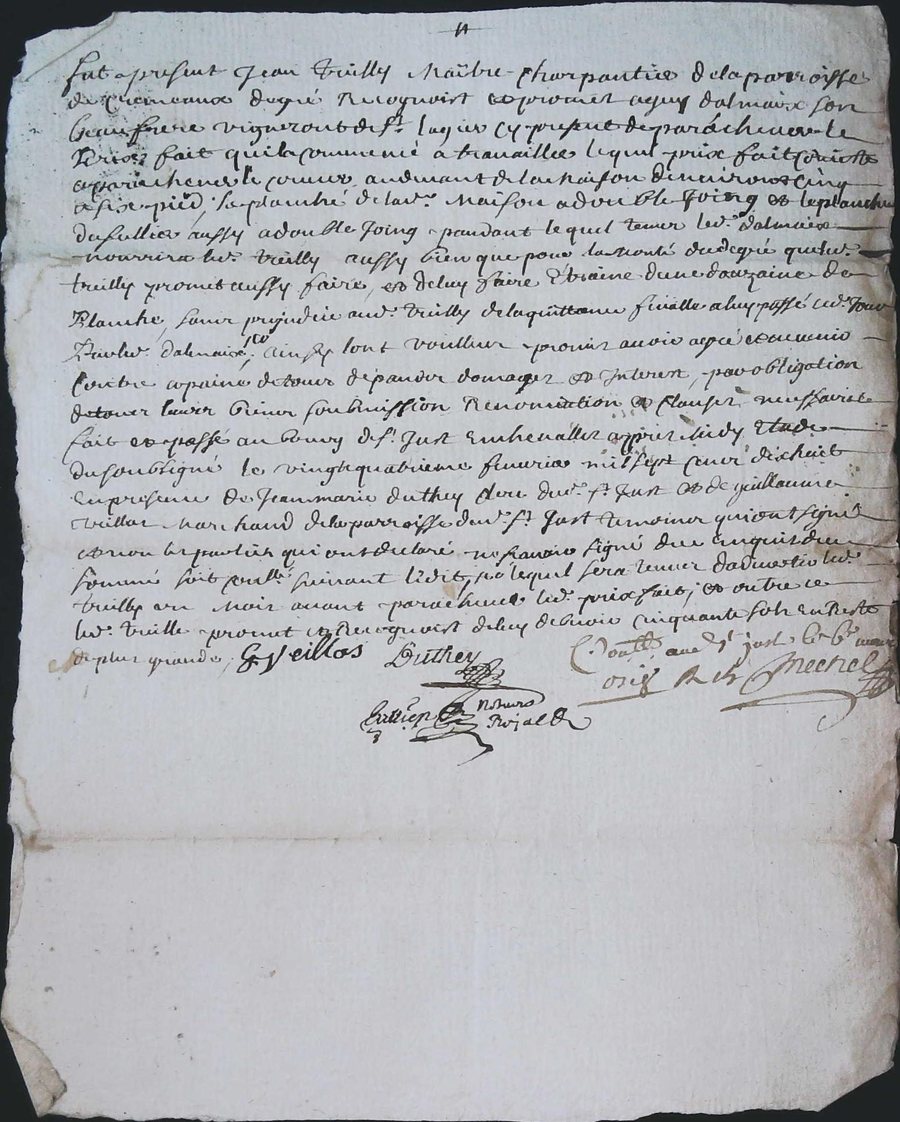 fut present Jean Trilly Maître Charpantie de la parroisse
de Cremeaux de gré Recognoist et promet a guy dalmaix son
beau frere vigneront de st lagier cy present de parachever le
prix fait quil a commencé a travaillee lequel prix fait consiste
a parachever le couver au devant de la Maison denviron cinq
a six pied, la planché de lad. Maison a double Joing et le planche
du sullier aussy a double Joing pandant lequel temp led. dalmaix
nourrira led. trilly aussy bien que pour la monté du degré que led.
trilly promet aussy faire, et de luy faire traine dune douzaine de
Planche, sans prejudice aud. Trilly de la quittance finalle a luy passé ced. Jour
Par led. dalmaix, ainsy lont voullu promis avoir agréé et
contre a paine de tous depandz domages et Interest, par obligation
de tous leurs biens soubmission Renontiation et clauses nessaires
fait et passé au bourg de st Just en chevallet apprès Midy Etude
du soubsigné le vingt quatrieme fevrie mil sept cent dixhuit
en presence de Jean marie duthey clerc dud. st Just et de guillaume
veillas Marchand de la parroisse dud. st Just temoins qui ont signé
et non les parties qui ont declaré ne scavoir signé de ce enquis
sommé soit suivant l'edit, lequel sera tenu dadvertir led.
trilly un Mois avant parachever led. prix fait; et outre ce
led. trille promet et Recognoist de luy devoir cinquante sols en Reste
de plus grande, G Veillas Duthey
Conttlé aud st just le
Notaire
Royal